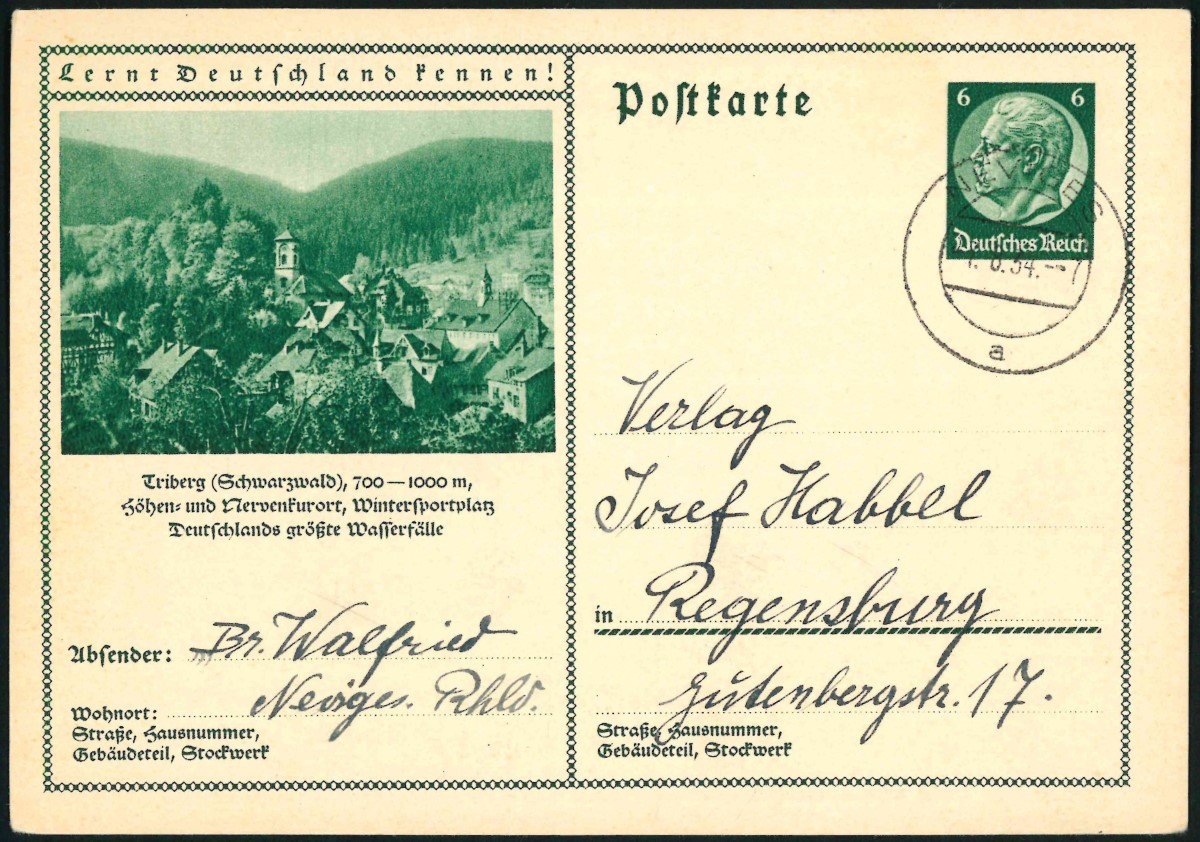 Lernt Deutschland kennen!
Triberg (Schwarzwald), 700—1000 m,
Höhen- und Nervenkurort, Wintersportplatz
Deutschlands größte Wasserfälle
Absender: Br. Walfried
Neviges. Rhld.
Wohnort:
Straße, Hausnummer,
Gebäudeteil, Stockwerk
Postkarte
6 6
Deutsches Reich
34.--7
a
Verlag
Josef Habbel
in Regensburg
Gutenbergstr. 17.
Straße, Hausnummer,
Gebäudeteil, Stockwerk